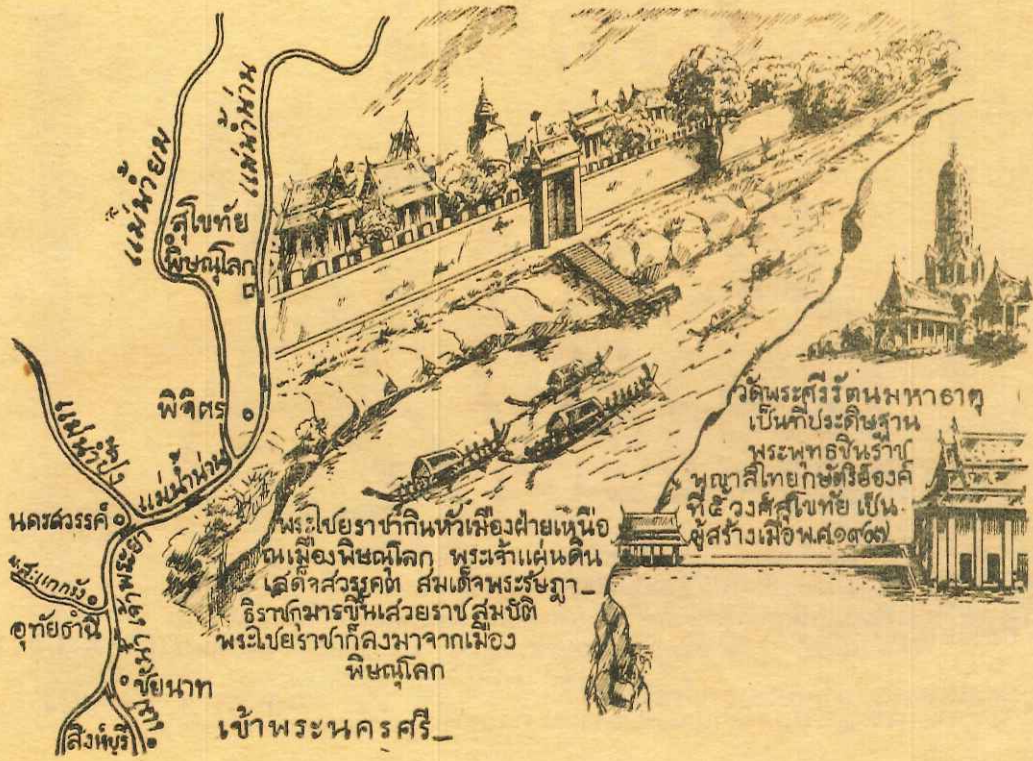 แม่น้ำยม
แม่น้ำน่าน
สุโขทัย
พิษณุโลก
พิจิตร
แม่น้ำปิง
แม่น้ำน่าน
นครสวรรค์
สะแกกรัง
อุทัยธานี
แม่น้ำเจ้าพระยา
ชัยนาท
สิงห์บุรี
พระไชยราชากินหัวเมืองฝ่ายเหนือ
ณเมืองพิษณุโลก พระเจ้าแผ่นดิน
เสด็จสวรรคต สมเด็จพระรัษฎา_
ธิราชกุมารขึ้นเสวยราชสมบัติ
พระไชยราชาก็ลงมาจากเมือง
พิษณุโลก
เข้าพระนครศรี_
วัดพระศรีรัตนมหาธาตุ
เป็นที่ประดิษฐาน
พระพุทธชินราช
พญาลิไทยกษัตริย์องค์
ที่๕ วงศ์สุโขทัย เป็น
ผู้สร้างเมื่อพ.ศ.๑๙๐๗